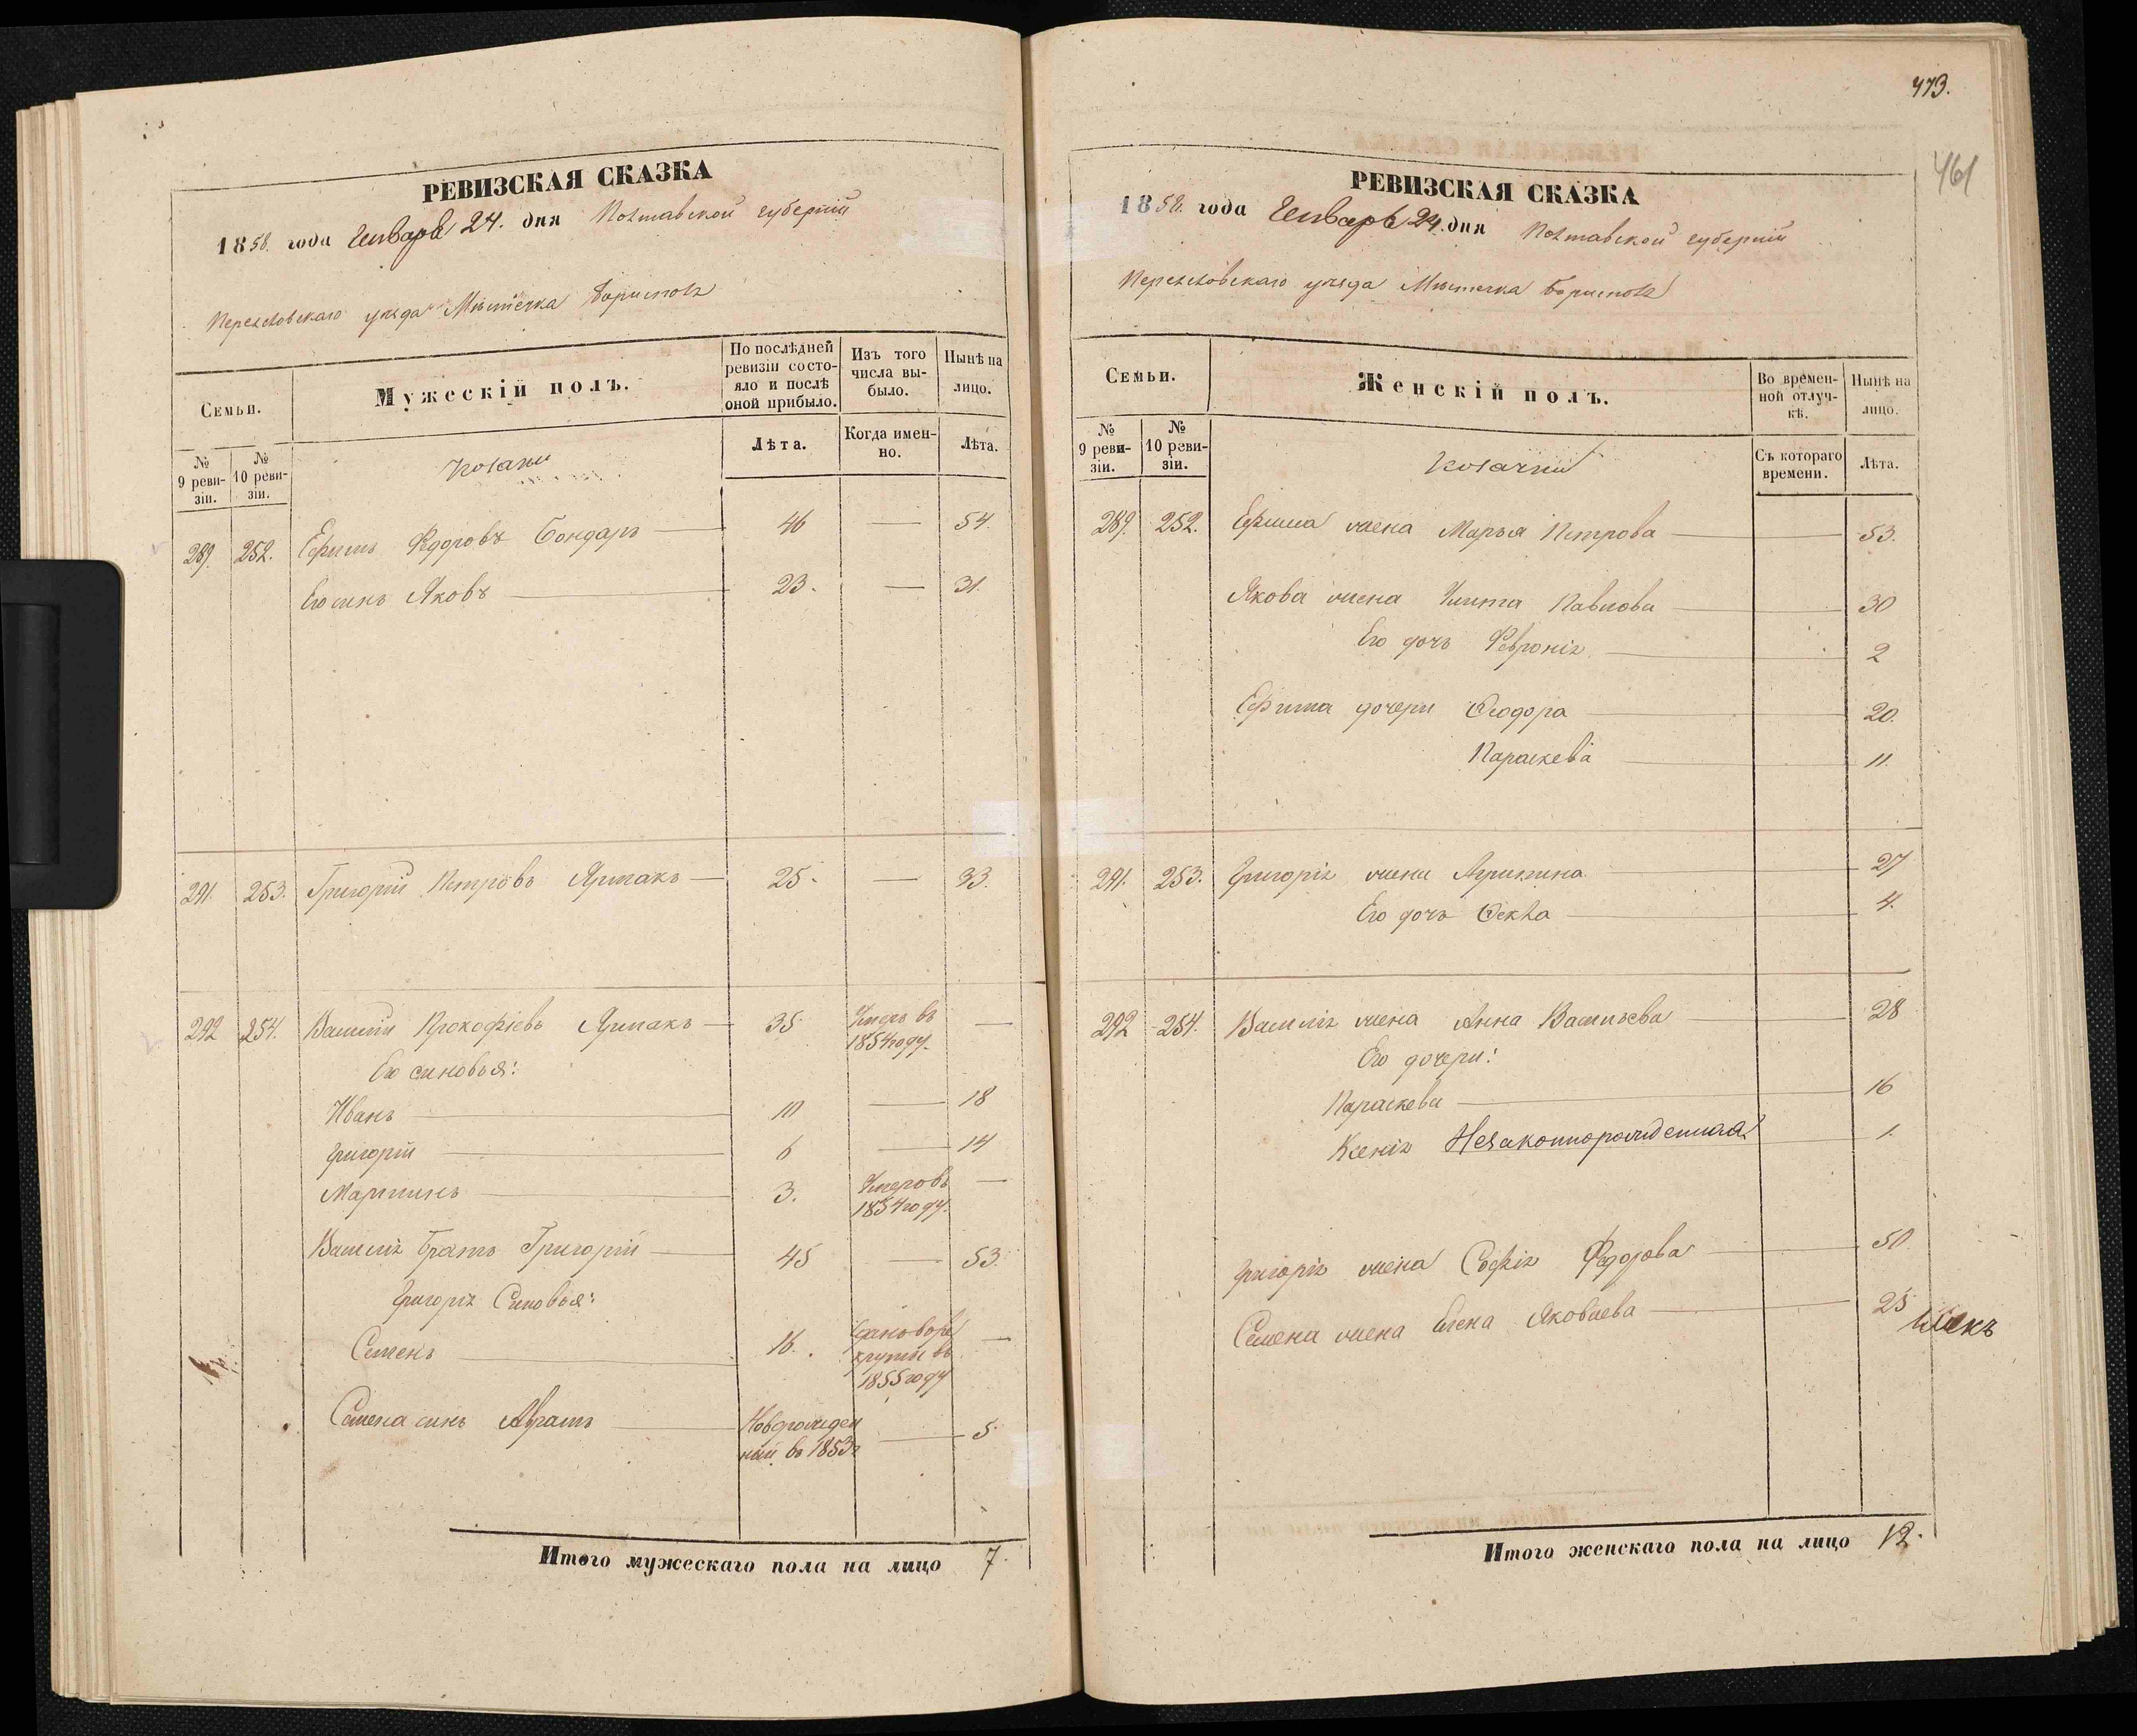 РЕВИЗСКАЯ СКАЗКА
1858. года Генваря 24. дня Полтавской губернiи
Переяславскаго уѣзда Мѣстечка Борисполя
Семьи.
Мужескiй полъ.
По послѣдней ревизiи состояло и послѣ оной прибыло.
Изъ того числа выбыло.
Нынѣ на лицо.
№ 9 ревизiи.
№ 10 ревизiи.
Козаки
Лѣта.
Когда именно.
Лѣта.
289. 252. Ефимъ Федоровъ Бондарь — 46 — 54.
Его сынъ Яковъ — 23. — 31.
291. 253. Григорiй Петровъ Ярмакъ — 25. — 33.
292 254. Василiй Прокофiевъ Ярмакъ — 35 Умеръ въ 1854 году. —
Его сыновья:
Иванъ — 10 — 18
Григорiй — 6 — 14
Мартинъ — 3. Умеръ въ 1854 году. —
Василiя братъ Григорiй — 45 — 53.
Григорiя Сыновья:
Семенъ — 16. Сданъ в рекруты въ 1855 году —
Семена сынъ Абрамъ — Новорожденный въ 1853 г — 5.
Итого мужескаго пола на лицо 7.
473.
461
РЕВИЗСКАЯ СКАЗКА
1858. года Генваря 24. дня Полтавской губернiи
Переяславскаго уѣзда Мѣстечка Борисполя
Семьи.
Женскiй полъ.
Во временной отлучкѣ.
Нынѣ на лицо.
№ 9 ревизiи.
№ 10 ревизiи.
Козачки
Съ котораго времени.
Лѣта.
289. 252. Ефима жена Марья Петрова — 53.
Якова жена Улита Павлова — 30
Его дочь Феврониiя — 2
Ефима дочери Феодора — 20.
Параскева — 11.
291. 253. Григорiя жена Агрипина — 27
Его дочь Фекла — 4.
292 254. Василiя жена Анна Васильева — 28
Его дочери:
Параскева — 16
Ксенiя Незаконнорожденная — 1.
Григорiя жена Софiя Федорова — 50
Семена жена Елена Яковлева — 25
Итого женскаго пола на лицо 12.